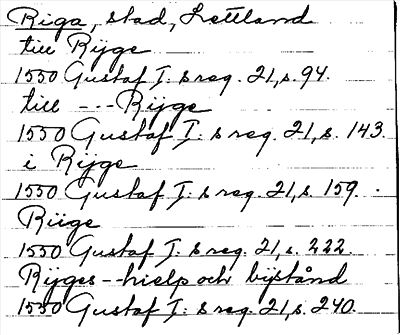 Riga, stad, Lettland
till Rijge
1550 Gustaf I:s reg. 21, s. 94.
till --- Rijge
1550 Gustaf I:s reg. 21, s. 143.
i Rijge
1550 Gustaf I:s reg. 21, s. 159.
Riige
1550 Gustaf I:s reg. 21, s. 222.
Rijges -- hielp och bijstånd
1550 Gustaf I:s reg. 21, s. 240.